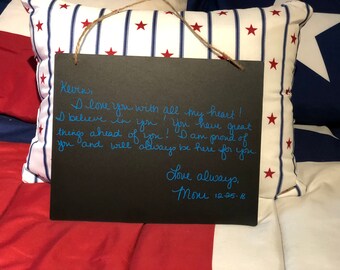 Kevin,
I love you with all my heart!
I believe in you! You have great
things ahead of you! I am proud of
you and will always be here for you.
Love always,
Mom 12-25-11